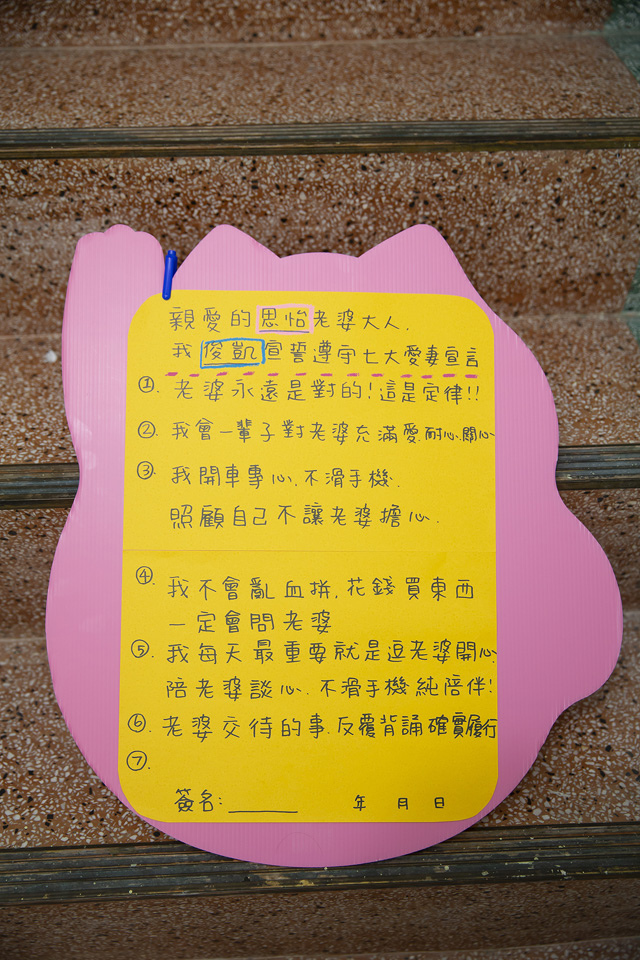 親愛的思怡老婆大人,
我俊凱宣誓遵守七大愛妻宣言
①. 老婆永遠是對的!這是定律!!
②. 我會一輩子對老婆充滿愛.耐心.關心
③. 我開車專心.不滑手機.
照顧自己不讓老婆擔心.
④. 我不會亂血拼.花錢買東西
一定會問老婆
⑤. 我每天最重要就是逗老婆開心
陪老婆談心.不滑手機純陪伴!
⑥. 老婆交待的事.反覆背誦確實履行
⑦.
簽名:______ 年 月 日